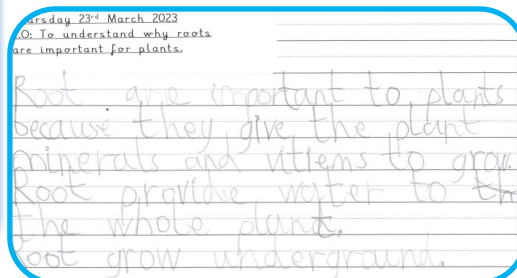 ursday 23rd March 2023
.O: To understand why roots
are important for plants.
Root are important to plants
because they give the plant
minerals and vitiems to grow.
Root provide water to
the whole plant.
Root grow underground.